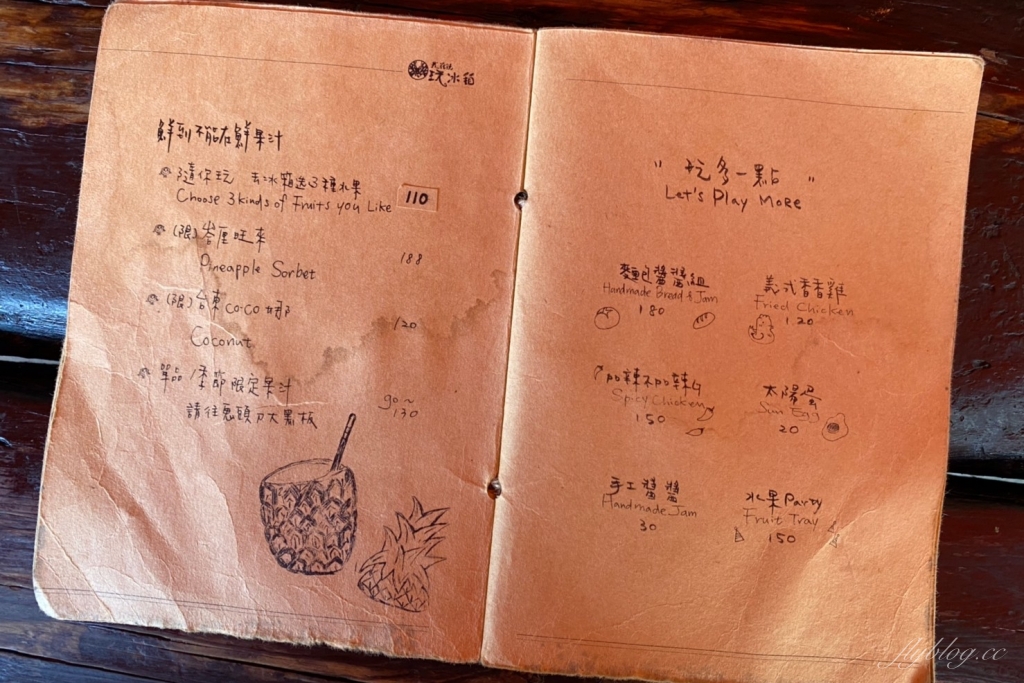 玩冰箱
鮮到不能在鮮果汁
隨你玩 去冰箱選3種水果
Choose 3 kinds of Fruits you Like 110
(限) 峇厘旺來
Pineapple Sorbet 188
(限) 台東 co-co 椰子
Coconut 120
單品/季節限定果汁 90~
請往惠頭大黑板 130
"玩多一點"
Let's Play More
麵包醬醬組
Handmade Bread & Jam
180
義式香香雞
Fried Chicken
120
加辣不加辣
Spicy Chicken
150
太陽蛋
Sun Egg
20
手工醬醬
Handmade Jam
30
水果Party
Fruit Tray
150
flyblog.cc